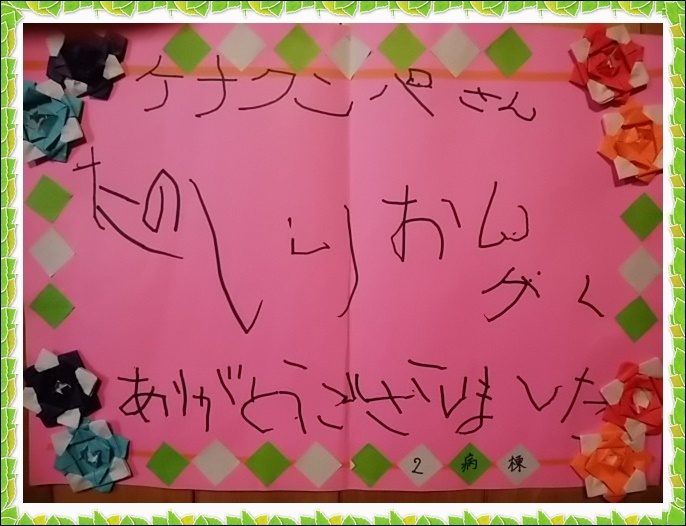 ケナクンパさん
たのしいおん
がく
ありがとうございました
2病棟